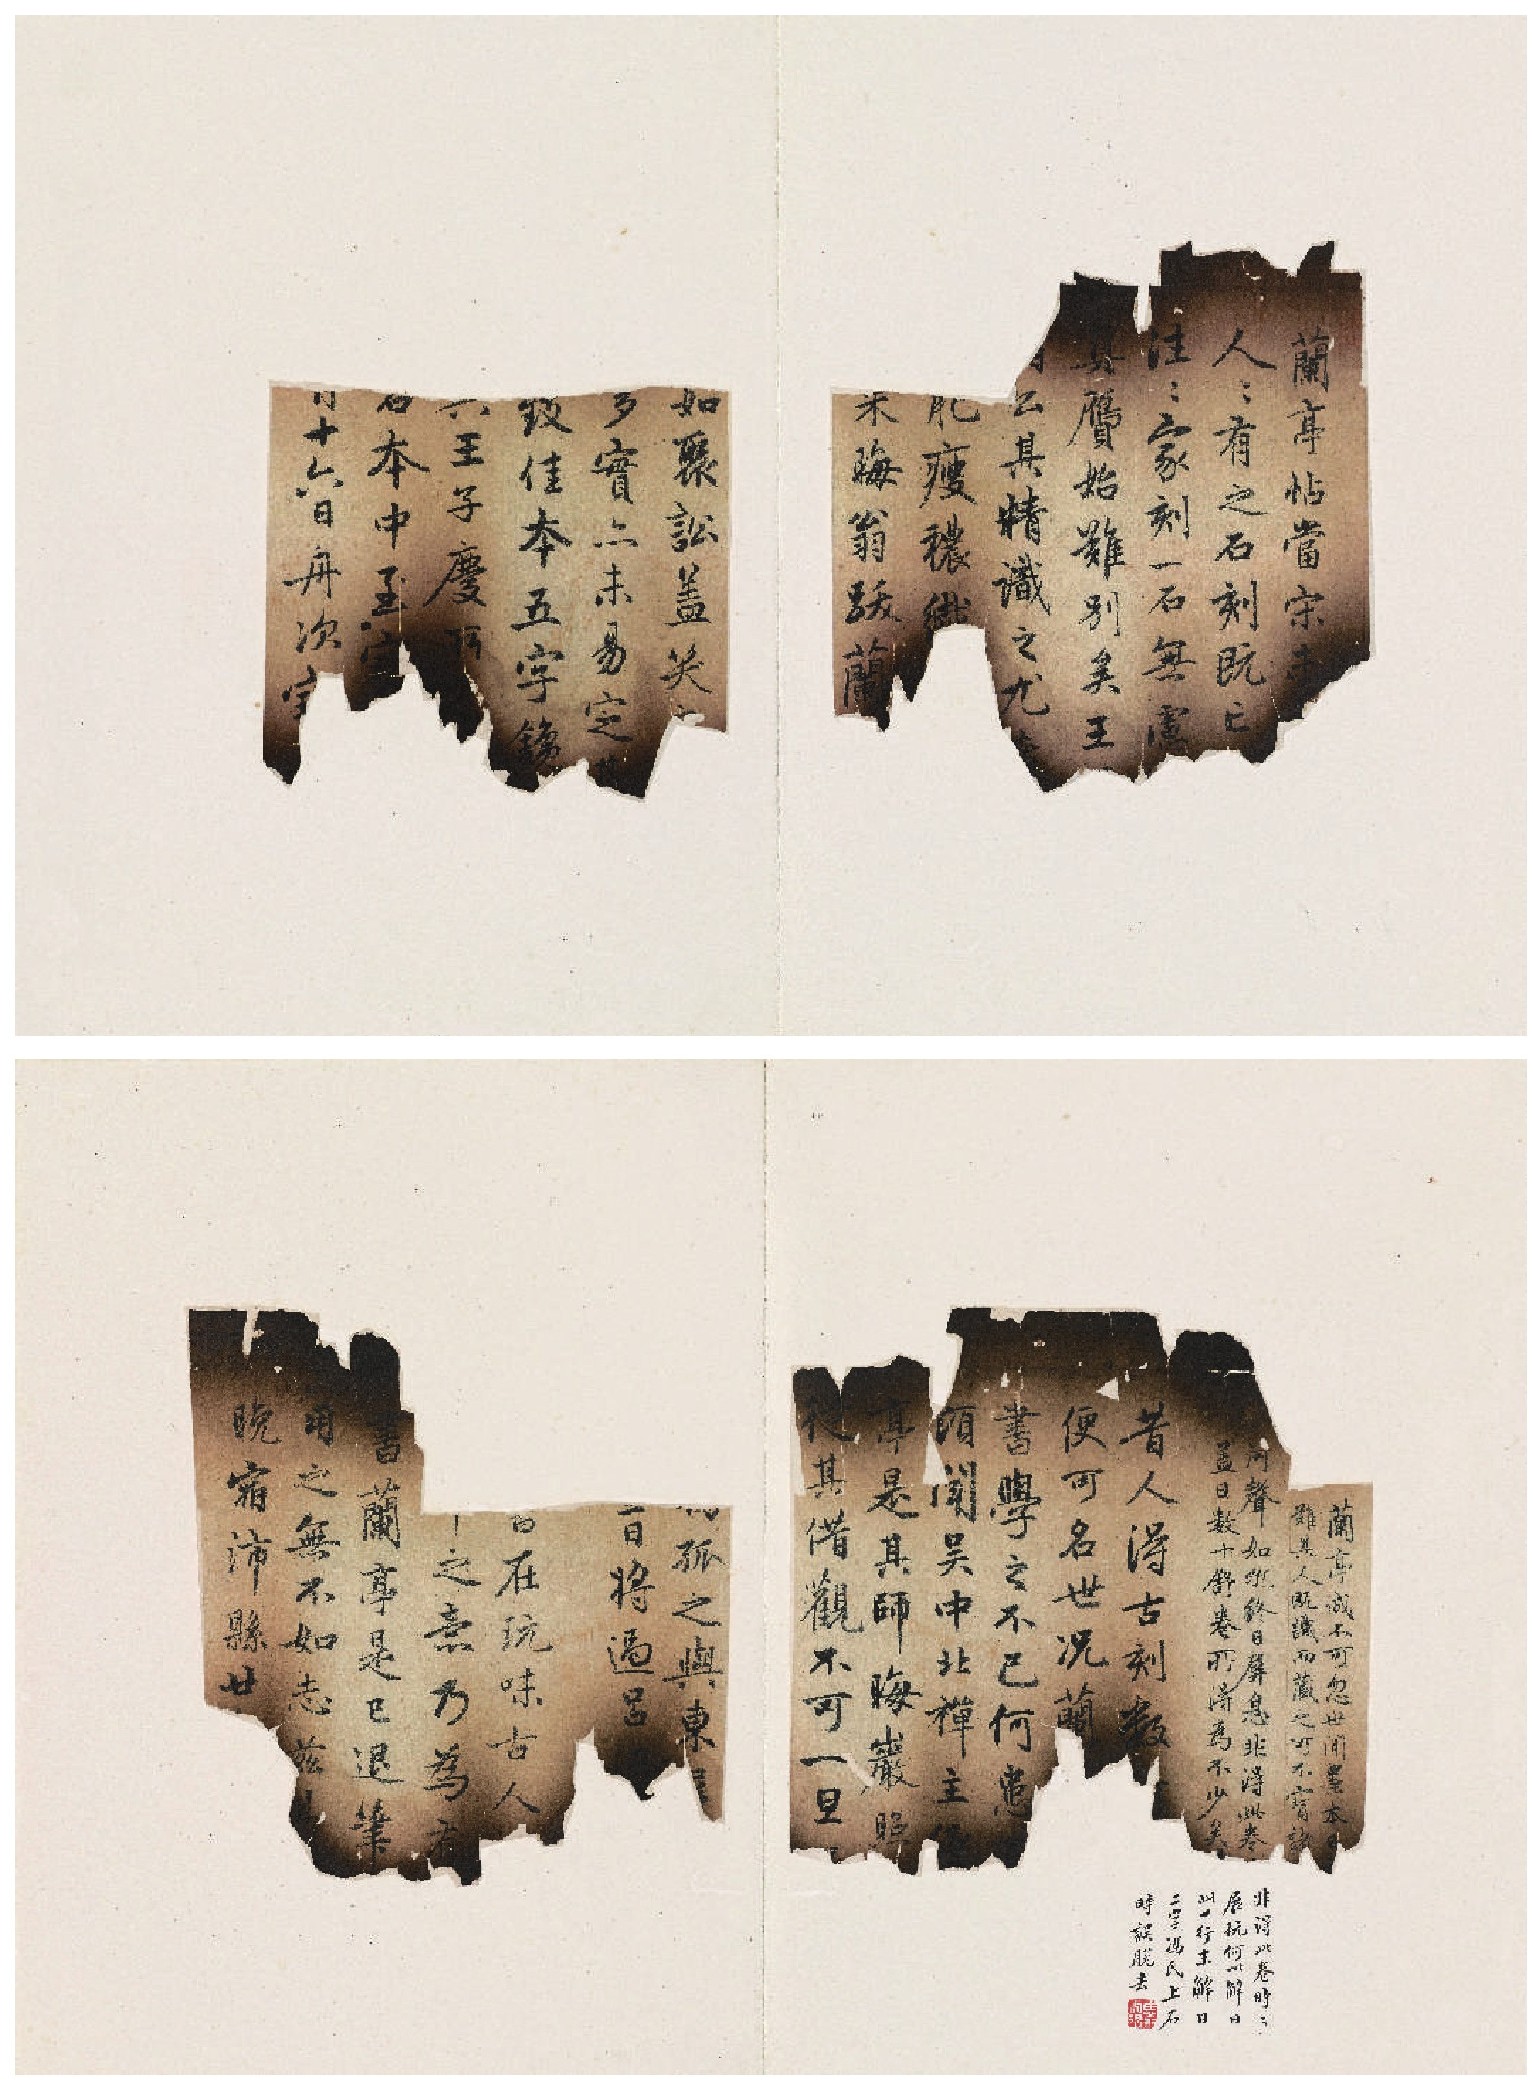 蘭亭帖當宋未
人〻有之石刻既亡
江〻家刻一石無慮
真贋始難別矣王
公其精識之尤
肥瘦穠纖
朱晦翁跋蘭
如聚訟蓋笑
多實亦未易定
致佳本五字鐫
王子慶所
石本中至
月十六日舟次
蘭亭誠不可忽世間墨本日
難其人既識而藏之可不寶諸
河聲如吼終日屏息非得此卷
蓋日數十舒卷所得為不少矣
昔人得古刻數
便可名世況蘭
書學之不已何患
頃聞吳中北禪主僧
亭是其師晦巖照
從其借觀不可一旦
獨孤之與東屏
一百將過呂
昔在玩味古人
之意乃為有
書蘭亭是已退筆
用之無不如志茲
晚宿沛縣廿
非得此卷時〻
展玩何以解日
此一行末解日
二字馮氏上石
時誤脫去